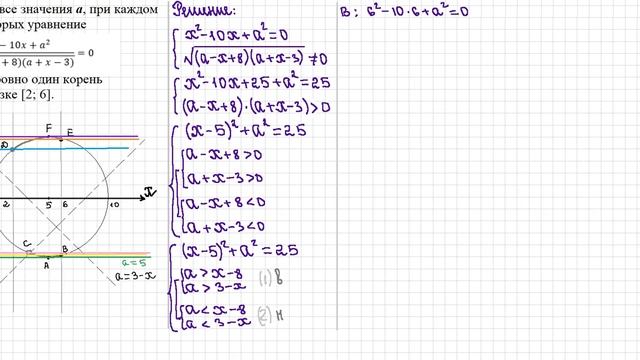 все значения a, при каждом
орых уравнение
− 10x + a²
+ 8)(a + x − 3) = 0
ровно один корень
зке [2; 6].
F E
D
2 5 6 10 x
C B
A
a=5
a=3-x
Решение:
x²-10x+a²=0
√(a-x+8)(a+x-3) ≠0
x²-10x+25+a²=25
(a-x+8)·(a+x-3)>0
(x-5)²+a²=25
a-x+8>0
a+x-3>0
a-x+8<0
a+x-3<0
(x-5)²+a²=25
a>x-8 (1) в
a>3-x
a<x-8 (2) н
a<3-x
B: 6²-10·6+a²=0